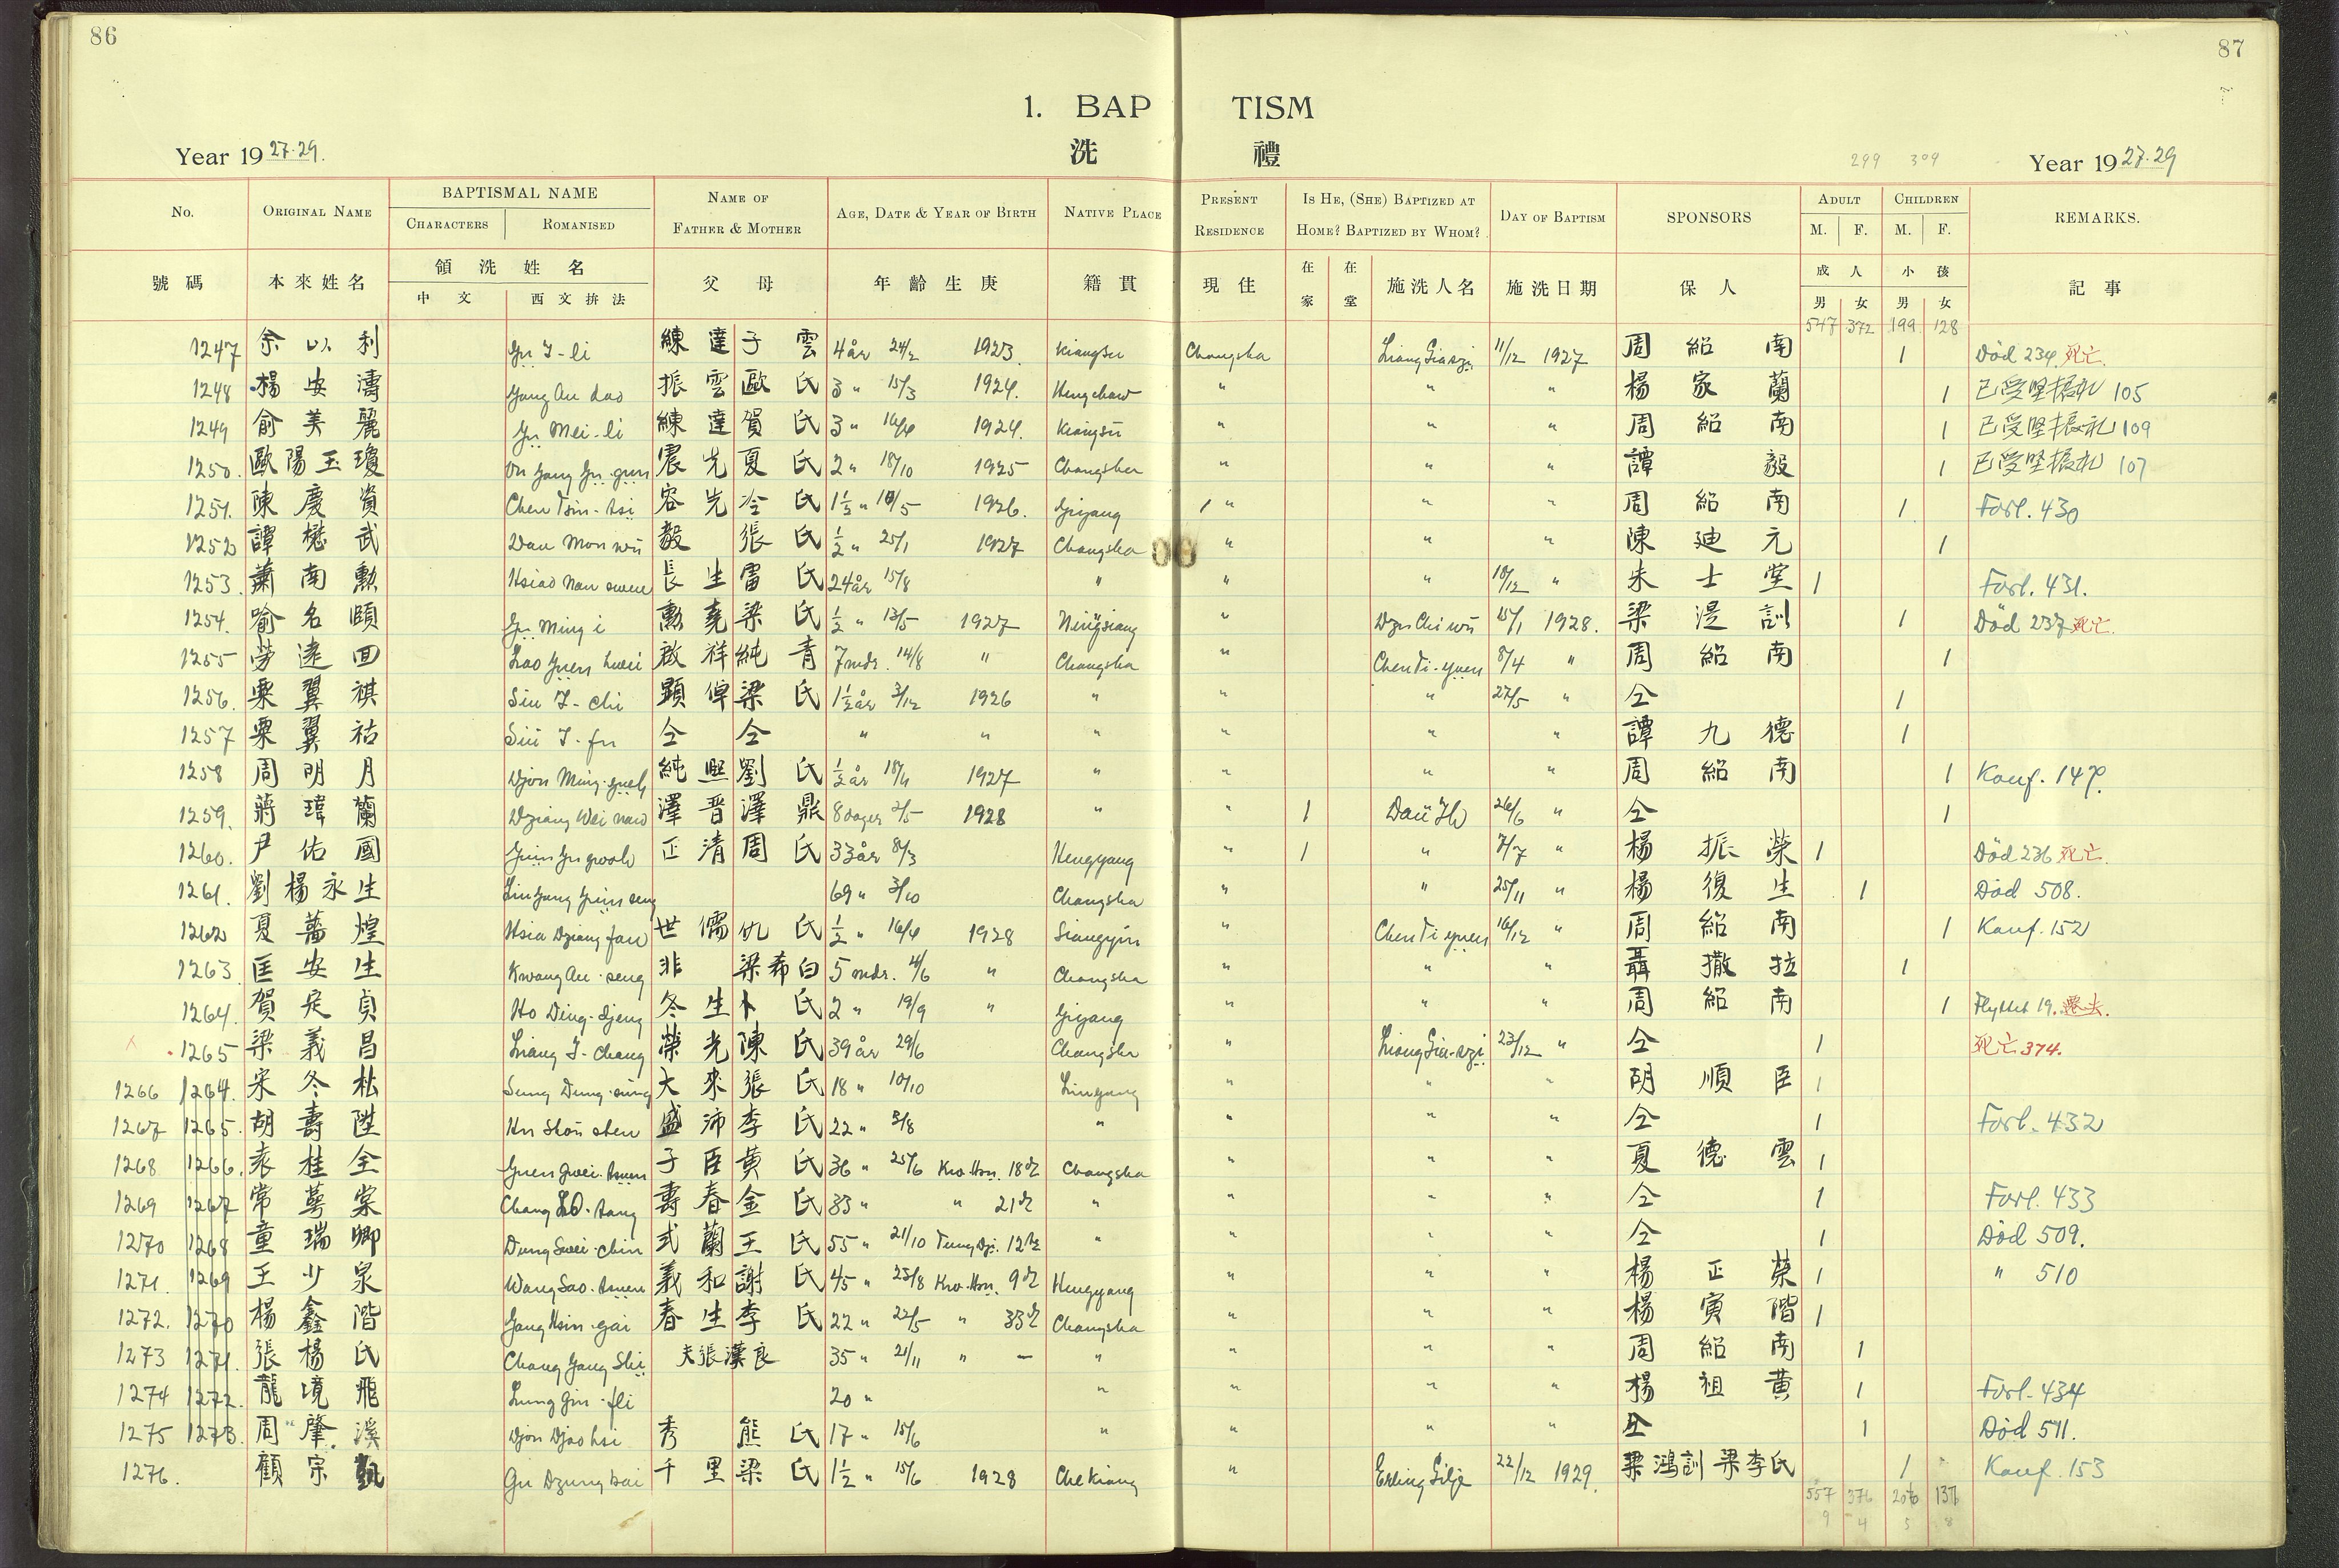 86
87
1. BAPTISM
洗 禮
Year 1927-29.
299 304
Year 1927-29
No. ORIGINAL NAME BAPTISMAL NAME CHARACTERS ROMANISED NAME OF FATHER & MOTHER AGE, DATE & YEAR OF BIRTH NATIVE PLACE PRESENT RESIDENCE IS HE, (SHE) BAPTIZED AT HOME? BAPTIZED BY WHOM? DAY OF BAPTISM SPONSORS ADULT M. F. CHILDREN M. F. REMARKS.
號碼 本來姓名 領洗姓名 中文 西文拚法 父母 年齡生庚 籍貫 現住 在家 在堂 施洗人名 施洗日期 保人 成人 男 女 小孩 男 女 記事
547 372 199 128
1247 余以利 Yü I-li 練達 子雲 4 år 24/2 1923. Kiangsu Changsha Liang Gia-dzi 11/12 1927 周紹南 1 Död 234 死亡.
1248 楊安濤 Yang An dao 振雲 歐氏 3 " 15/3 1924. Hengchow " " " 楊家蘭 1 已受堅振礼 105
1249 俞美麗 Yü Mei-li 練達 賀氏 3 " 16/4 1924. Kiangsu " " " 周紹南 1 已受堅振礼 109
1250. 歐陽玉瓊 震先 夏氏 2 " 18/10 1925 Changsha " " " 譚毅 1 已受堅振礼 107
1251. 陳慶資 容先 冷氏 1½ " 1926. Yiyang " " " 周紹南 1 Forl. 430
1252 譚懋武 Dan Mou wu 毅 張氏 ½ " 25/1 1927 Changsha " " " 陳廸元 1
1253. 蕭南勲 Hsiao Nan 長生 雷氏 24 år 15/8 " " " 18/12 " 朱士堂 1 Forl. 431.
1254. 喻名頤 Yü Ming i 勲堯 梁氏 ½ " 13/5 1927 Ningsiang " 15/1 1928. 梁湜訓 1 Död 237 死亡.
1255 勞遠回 Lao Yuen huei 啟祥 純青 7 mdr. 14/8 " Changsha " Chen Ti-yuen 8/4 " 周紹南 1
1256. 粟翼祺 Siu I-chi 顯倬 梁氏 1½ år 3/12 1926 " " " 27/5 " 仝 1
1257 粟翼祜 Siu I-fu 仝 仝 " " " " " " 譚九德 1
1258 周明月 Djou Ming-yueh 純熙 劉氏 ½ år 1927 " " " " 周紹南 1 Konf. 147.
1259. 蔣瑋蘭 Dziang Wei 澤晋 澤鼎 8 dager 2/5 1928 " " 1 26/6 " 仝 1
1260. 尹佑國 正清 周氏 33 år 8/3 Hengyang " 1 " 7/7 " 楊振榮 1 Död 236 死亡.
1261. 劉楊永生 69 " 3/10 Changsha " " 25/11 " 楊復生 1 Död 508.
1262 夏薔煌 Hsia Dziang 世儒 仇氏 ½ " 16/4 1928 Siangyin " Chen Ti yuen 16/12 " 周紹南 1 Konf. 152
1263 匡安生 Kwang An-seng 非 梁希白 5 mdr. 4/6 " Changsha " " " 聶撒拉 1
1264. 賀定貞 Ho Ding-djeng 冬生 卜氏 2 " 19/9 " Yiyang " " " 周紹南 1 Flyttet 19. 遷去.
1265 梁義昌 Liang I-chang 榮光 陳氏 39 år 29/6 Changsha " Liang Gia-dzi 23/12 " 仝 1 死亡 374.
1266 1264. 宋冬松 Sung Dung-sung 大來 張氏 18 " 10/10 Liuyang " " " 胡順臣 1
1267 1265. 胡壽陞 Hu Shou shen 盛沛 李氏 22 " 3/8 " " " " 仝 1 Forl. 432
1268 1266. 袁桂全 子臣 黃氏 36 " 25/6 Changsha " " " 夏德雲 1
1269 1267 常萼棠 壽春 金氏 33 " " " " " " 仝 1 Forl. 433
1270 1268 童瑞卿 式蘭 王氏 55 " 21/10 " " " " 仝 1 Död 509.
1271. 1269 王少泉 Wang Sao-tsuen 義和 謝氏 45 " 25/8 Hengyang " " " 楊正榮 1 " 510
1272. 1270 楊鑫階 Yang Hsin-gai 春生 李氏 22 " 22/5 " Changsha " " " 楊寅階 1
1273 1271. 張楊氏 Chang Yang Shi 夫張漢良 35 " 21/11 " — " " " " 周紹南 1
1274 1272. 龍境飛 20 " " " " " 楊祖黃 1 Forl. 434
1275 1273. 周肇溪 Djou Djao hsi 秀 熊氏 17 " 15/6 " " " " 仝 1 Död 511.
1276. 顧宗凱 Gu Dzung kai 千里 梁氏 1½ " 15/6 1928 Chekiang " Erling Gilje 22/12 1929. 梁鴻訓 梁李氏 1 Konf. 153
557 376 206 136
9 4 5 8